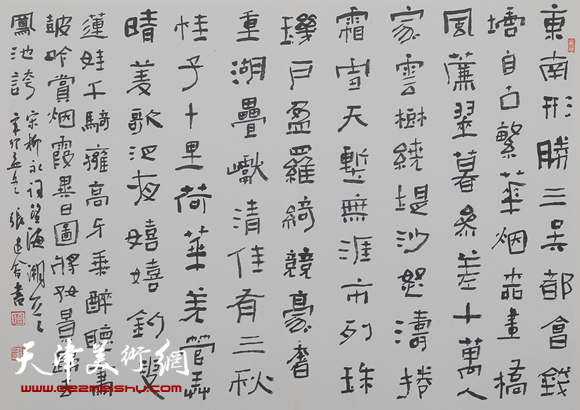 東南形勝三吳都會錢
塘自古繁華烟柳畫橋
風簾翠幕參差十萬人
家雲樹繞堤沙怒濤捲
霜雪天塹無涯市列珠
璣戶盈羅綺競豪奢
重湖疊巘清佳有三秋
桂子十里荷華羌管弄
晴菱歌泛夜嬉嬉釣叟
蓮娃千騎擁高牙乘醉聽簫
鼓吟賞烟霞異日圖將好景歸去
鳳池誇
宋柳永詞望海潮
辛卯孟冬張建會書
天津美術網
www.022meishu.com